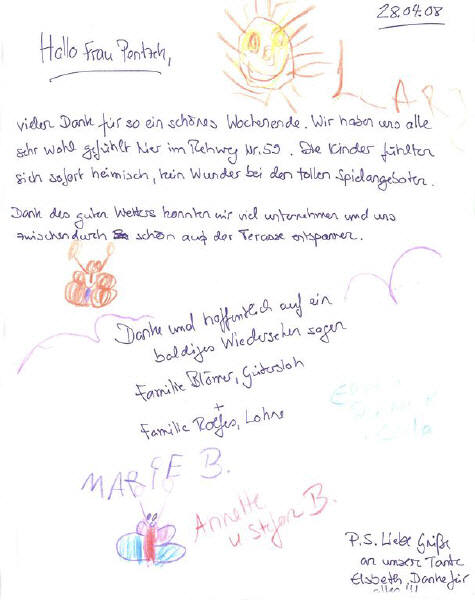 28.04.08
Hallo Frau Pantzch,
LARS
vielen Dank für so ein schönes Wochenende. Wir haben uns alle
sehr wohl gefühlt hier im Rehweg Nr. 59. Die Kinder fühlten
sich sofort heimisch, kein Wunder bei den tollen Spielangeboten.
Dank des guten Wetters konnten wir viel unternehmen und uns
zwischendurch schön auf der Terasse entspannen.
Danke und hoffentlich auf ein
baldiges Wiedersehen sagen
Familie Blömer, Gütersloh
+
Familie Rolfes, Lohne
MARIE B.
Annette
u Stefan B.
P.S. Liebe Grüße
an unsere Tante
Elsbeth, Danke für
alles !!!